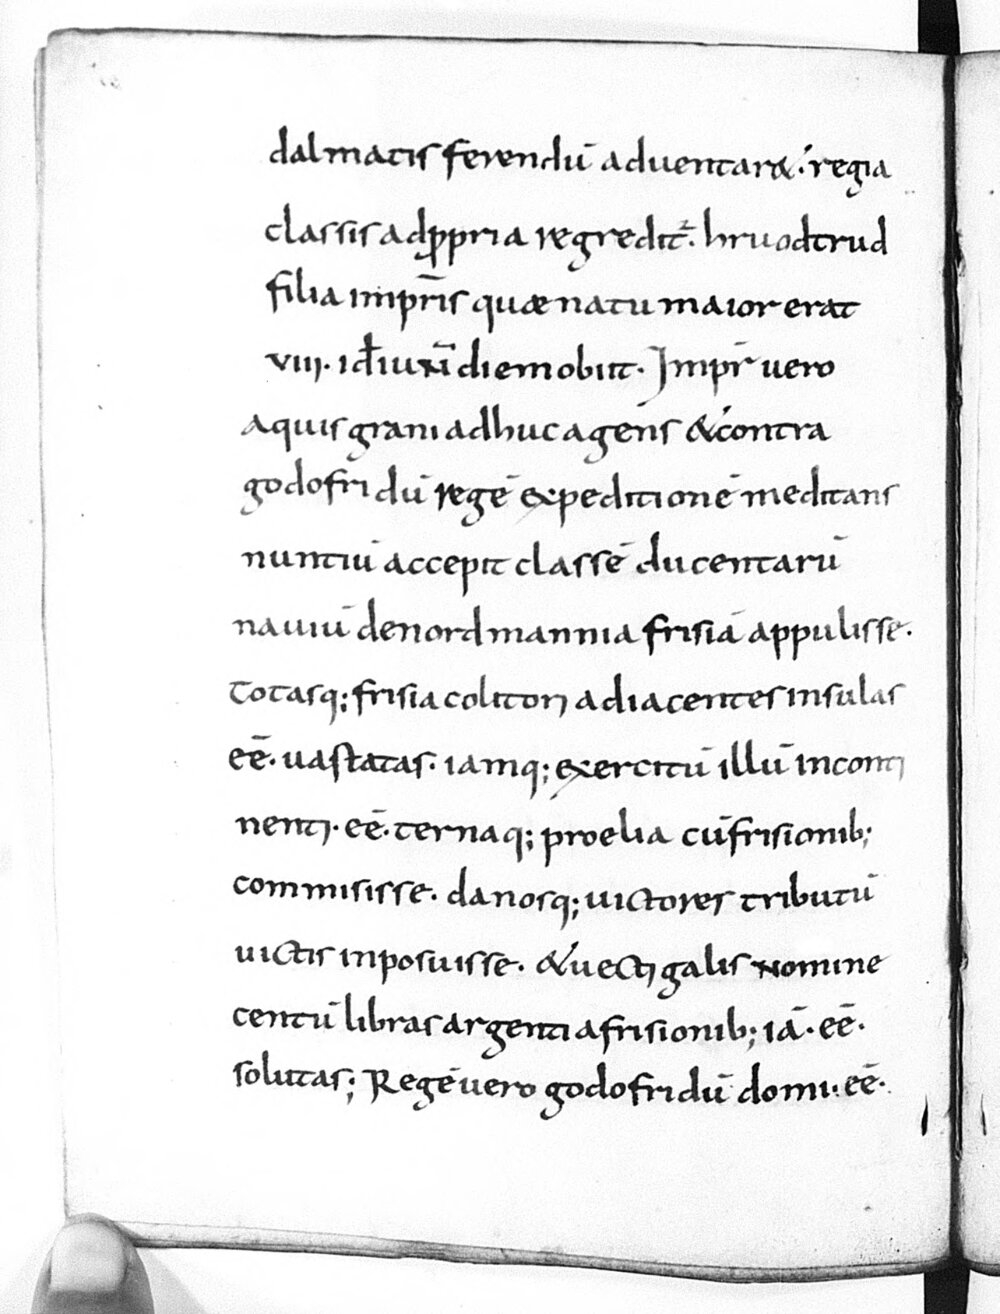 dalmatis ferendū aduentar&. regia
classis ad ꝓpria regredit᷑. hruodtrud
filia impr̄is quæ natu maior erat
VIII. id̄ iuñ diem obiit. Impr̄ uero
aquisgrani adhuc agens & contra
godofridū regē expeditionē meditans
nuntiū accepit classē ducentarū
nauiū de nordmannia frisiā appulisse.
Totasq; frisia colitori adiacentes insulas
eē. uastatas. iamq; exercitū illū in conti
nenti. eē. ternaq; proelia cū frisionib;
commisisse. danosq; uictores tributū
uictis inposuisse. & uectigalis nomine
centū libras argenti a frisionib; iā. eē.
solutas; Regē uero godofridū domi. eē.